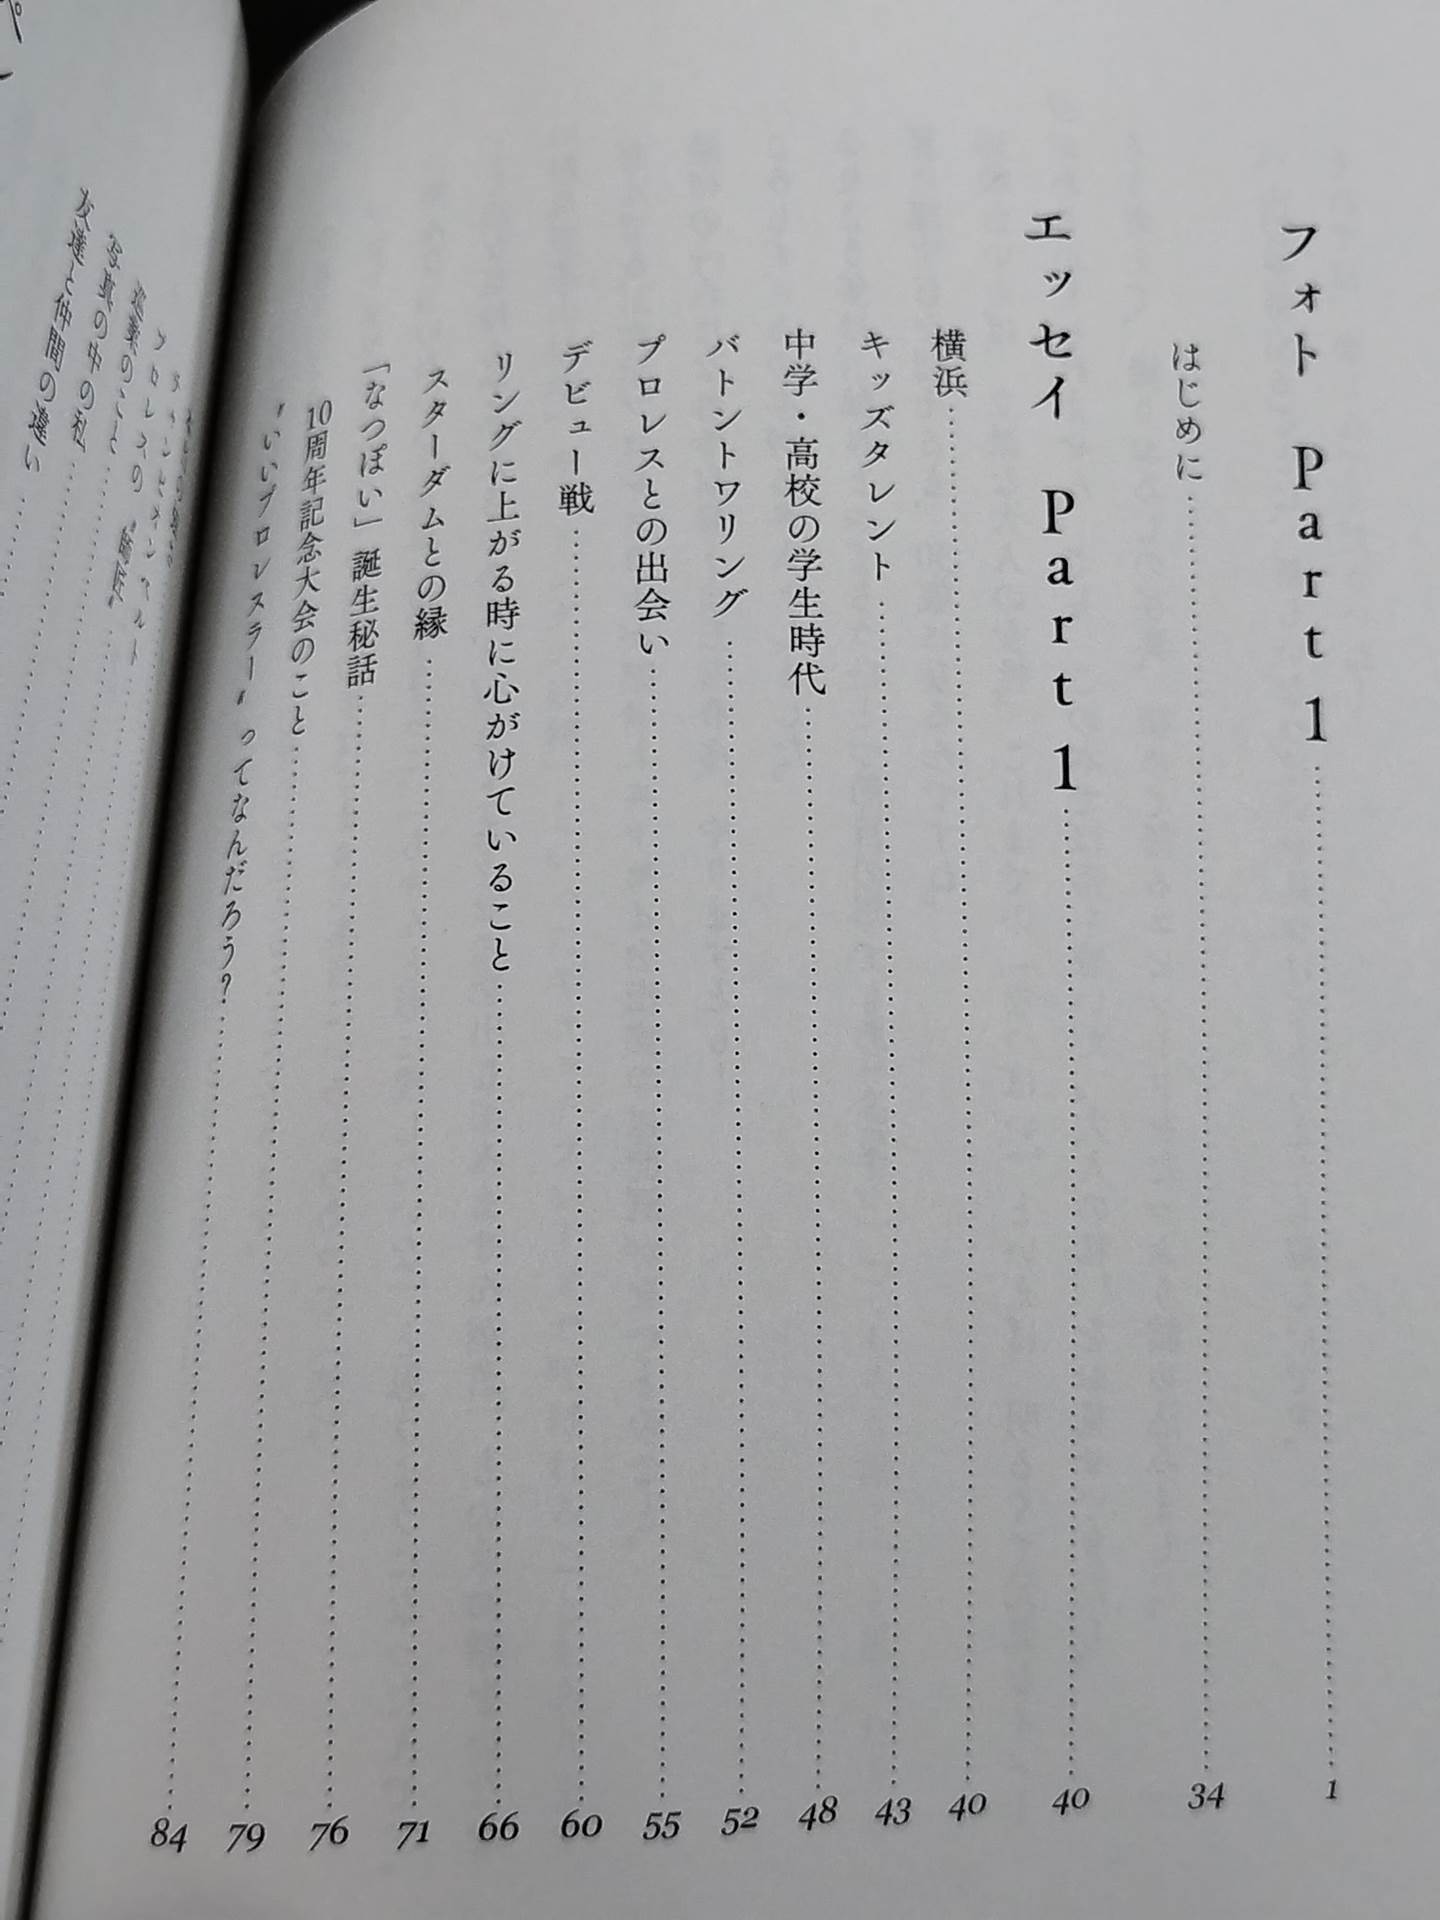 フォト Part 1 …… 1
はじめに …… 34
エッセイ Part 1 …… 40
横浜 …… 40
キッズタレント …… 43
中学・高校の学生時代 …… 48
バトントワリング …… 52
プロレスとの出会い …… 55
デビュー戦 …… 60
リングに上がる時に心がけていること …… 66
スターダムとの縁 …… 71
「なつぽい」誕生秘話 …… 76
10周年記念大会のこと …… 79
〝いいプロレスラー〟ってなんだろう? …… 84
プロレスの〝師匠〟
写真の中の私
友達と仲間の違い